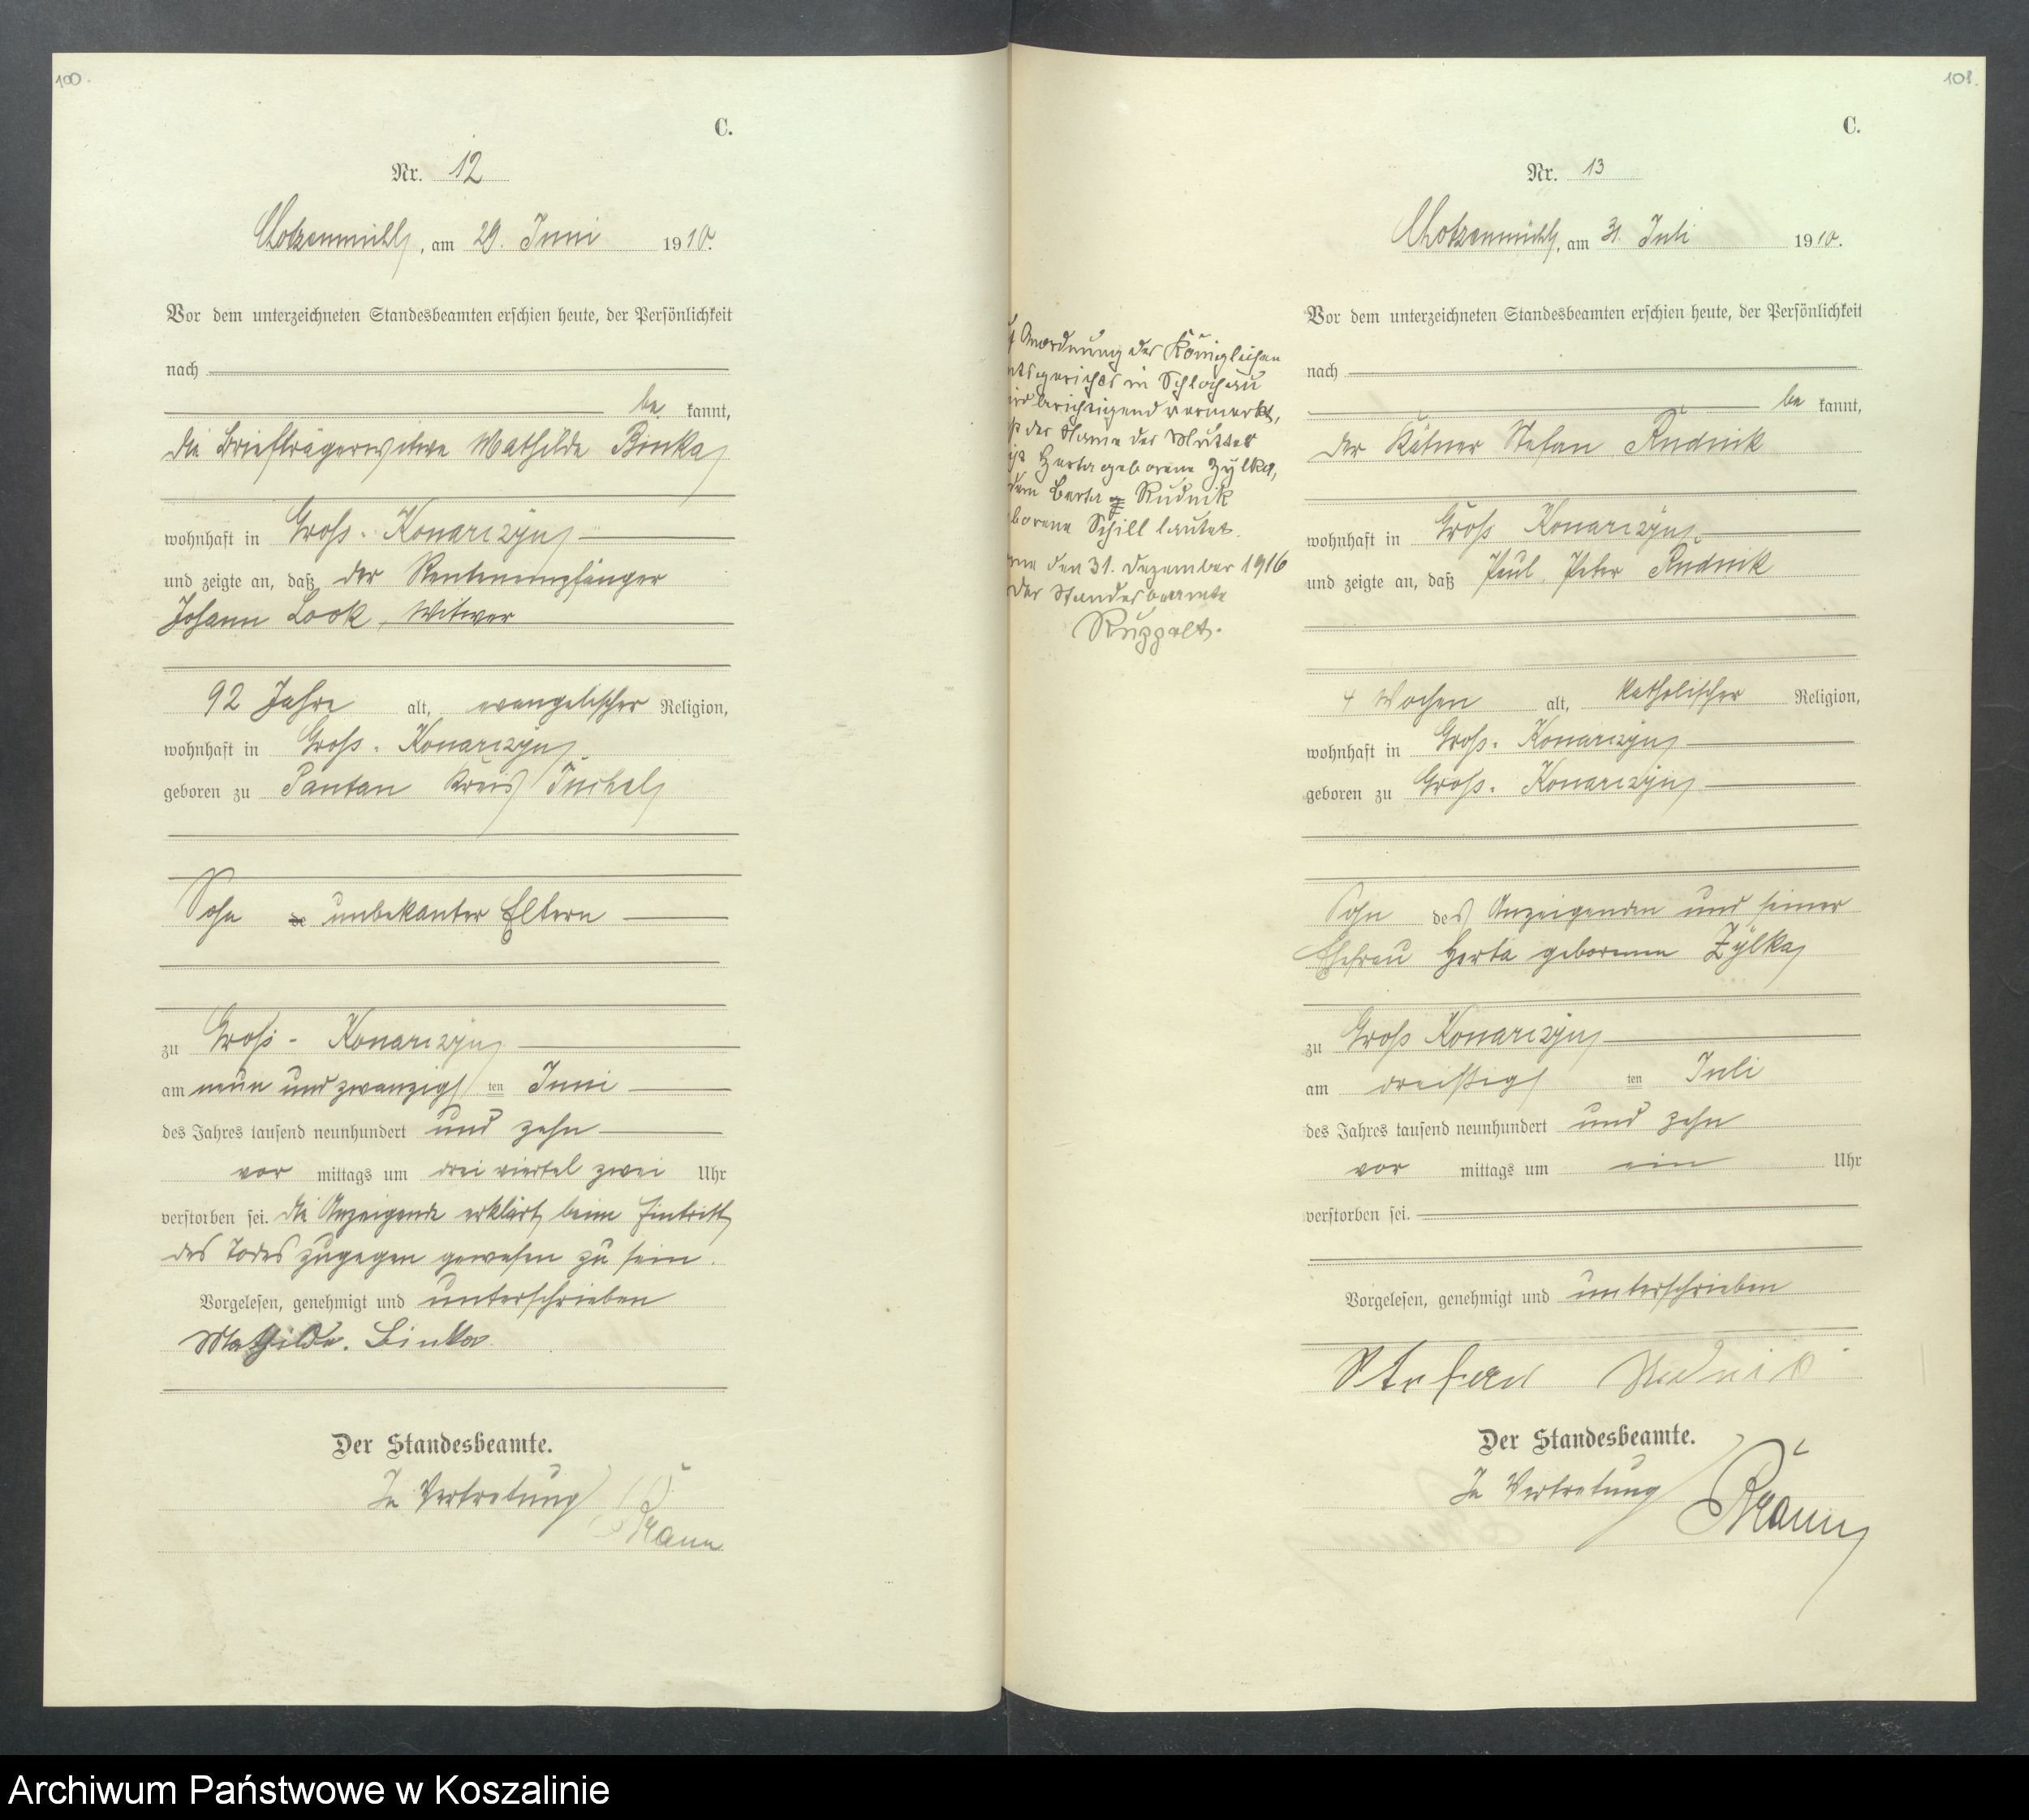 100.
C.
Nr. 12
Chotzenmühl, am 29. Juni 1910.
Vor dem unterzeichneten Standesbeamten erschien heute, der Persönlichkeit
nach
be kannt,
die Briefträgerwitwe Mathilde Binka
wohnhaft in Groß-Konarczyn
und zeigte an, daß der Rentenempfänger
Johann Look, Witwer
92 Jahre alt, evangelischer Religion,
wohnhaft in Groß-Konarczyn
geboren zu Pantau Kreis Tuchel
Sohn de unbekanter Eltern
zu Groß-Konarczyn
am neun und zwanzig ten Juni
des Jahres tausend neunhundert und zehn
vor mittags um drei viertel zwei Uhr
verstorben sei. die Anzeigende erklärt, beim Eintritt
des Todes zugegen gewesen zu sein.
Vorgelesen, genehmigt und unterschrieben
Mathilde. Binka
Der Standesbeamte.
In Vertretung
101.
C.
Nr. 13
Chotzenmühl, am 31. Juli 1910.
Vor dem unterzeichneten Standesbeamten erschien heute, der Persönlichkeit
nach
be kannt,
der Kätner Stefan Rudnik
wohnhaft in Groß Konarczyn
und zeigte an, daß Paul Peter Rudnik
4 Wochen alt, katholischer Religion,
wohnhaft in Groß-Konarczyn
geboren zu Groß-Konarczyn
Sohn des Anzeigenden und seiner
Ehefrau Herta geborenen Zylka
zu Groß Konarczyn
am dreißig ten Juli
des Jahres tausend neunhundert und zehn
vor mittags um ein Uhr
verstorben sei.
Vorgelesen, genehmigt und unterschrieben
Stefan Rudnik
Der Standesbeamte.
In Vertretung
Anordnung des Königlichen
tsgerichts in Schlochau
ird berichtigend vermerkt,
ß der Name der Mutter
Herta geborene Zylka,
dern Berta Rudnik
borene Schill lautet.
den 31. Dezember 1916
Der Standesbeamte
Archiwum Państwowe w Koszalinie